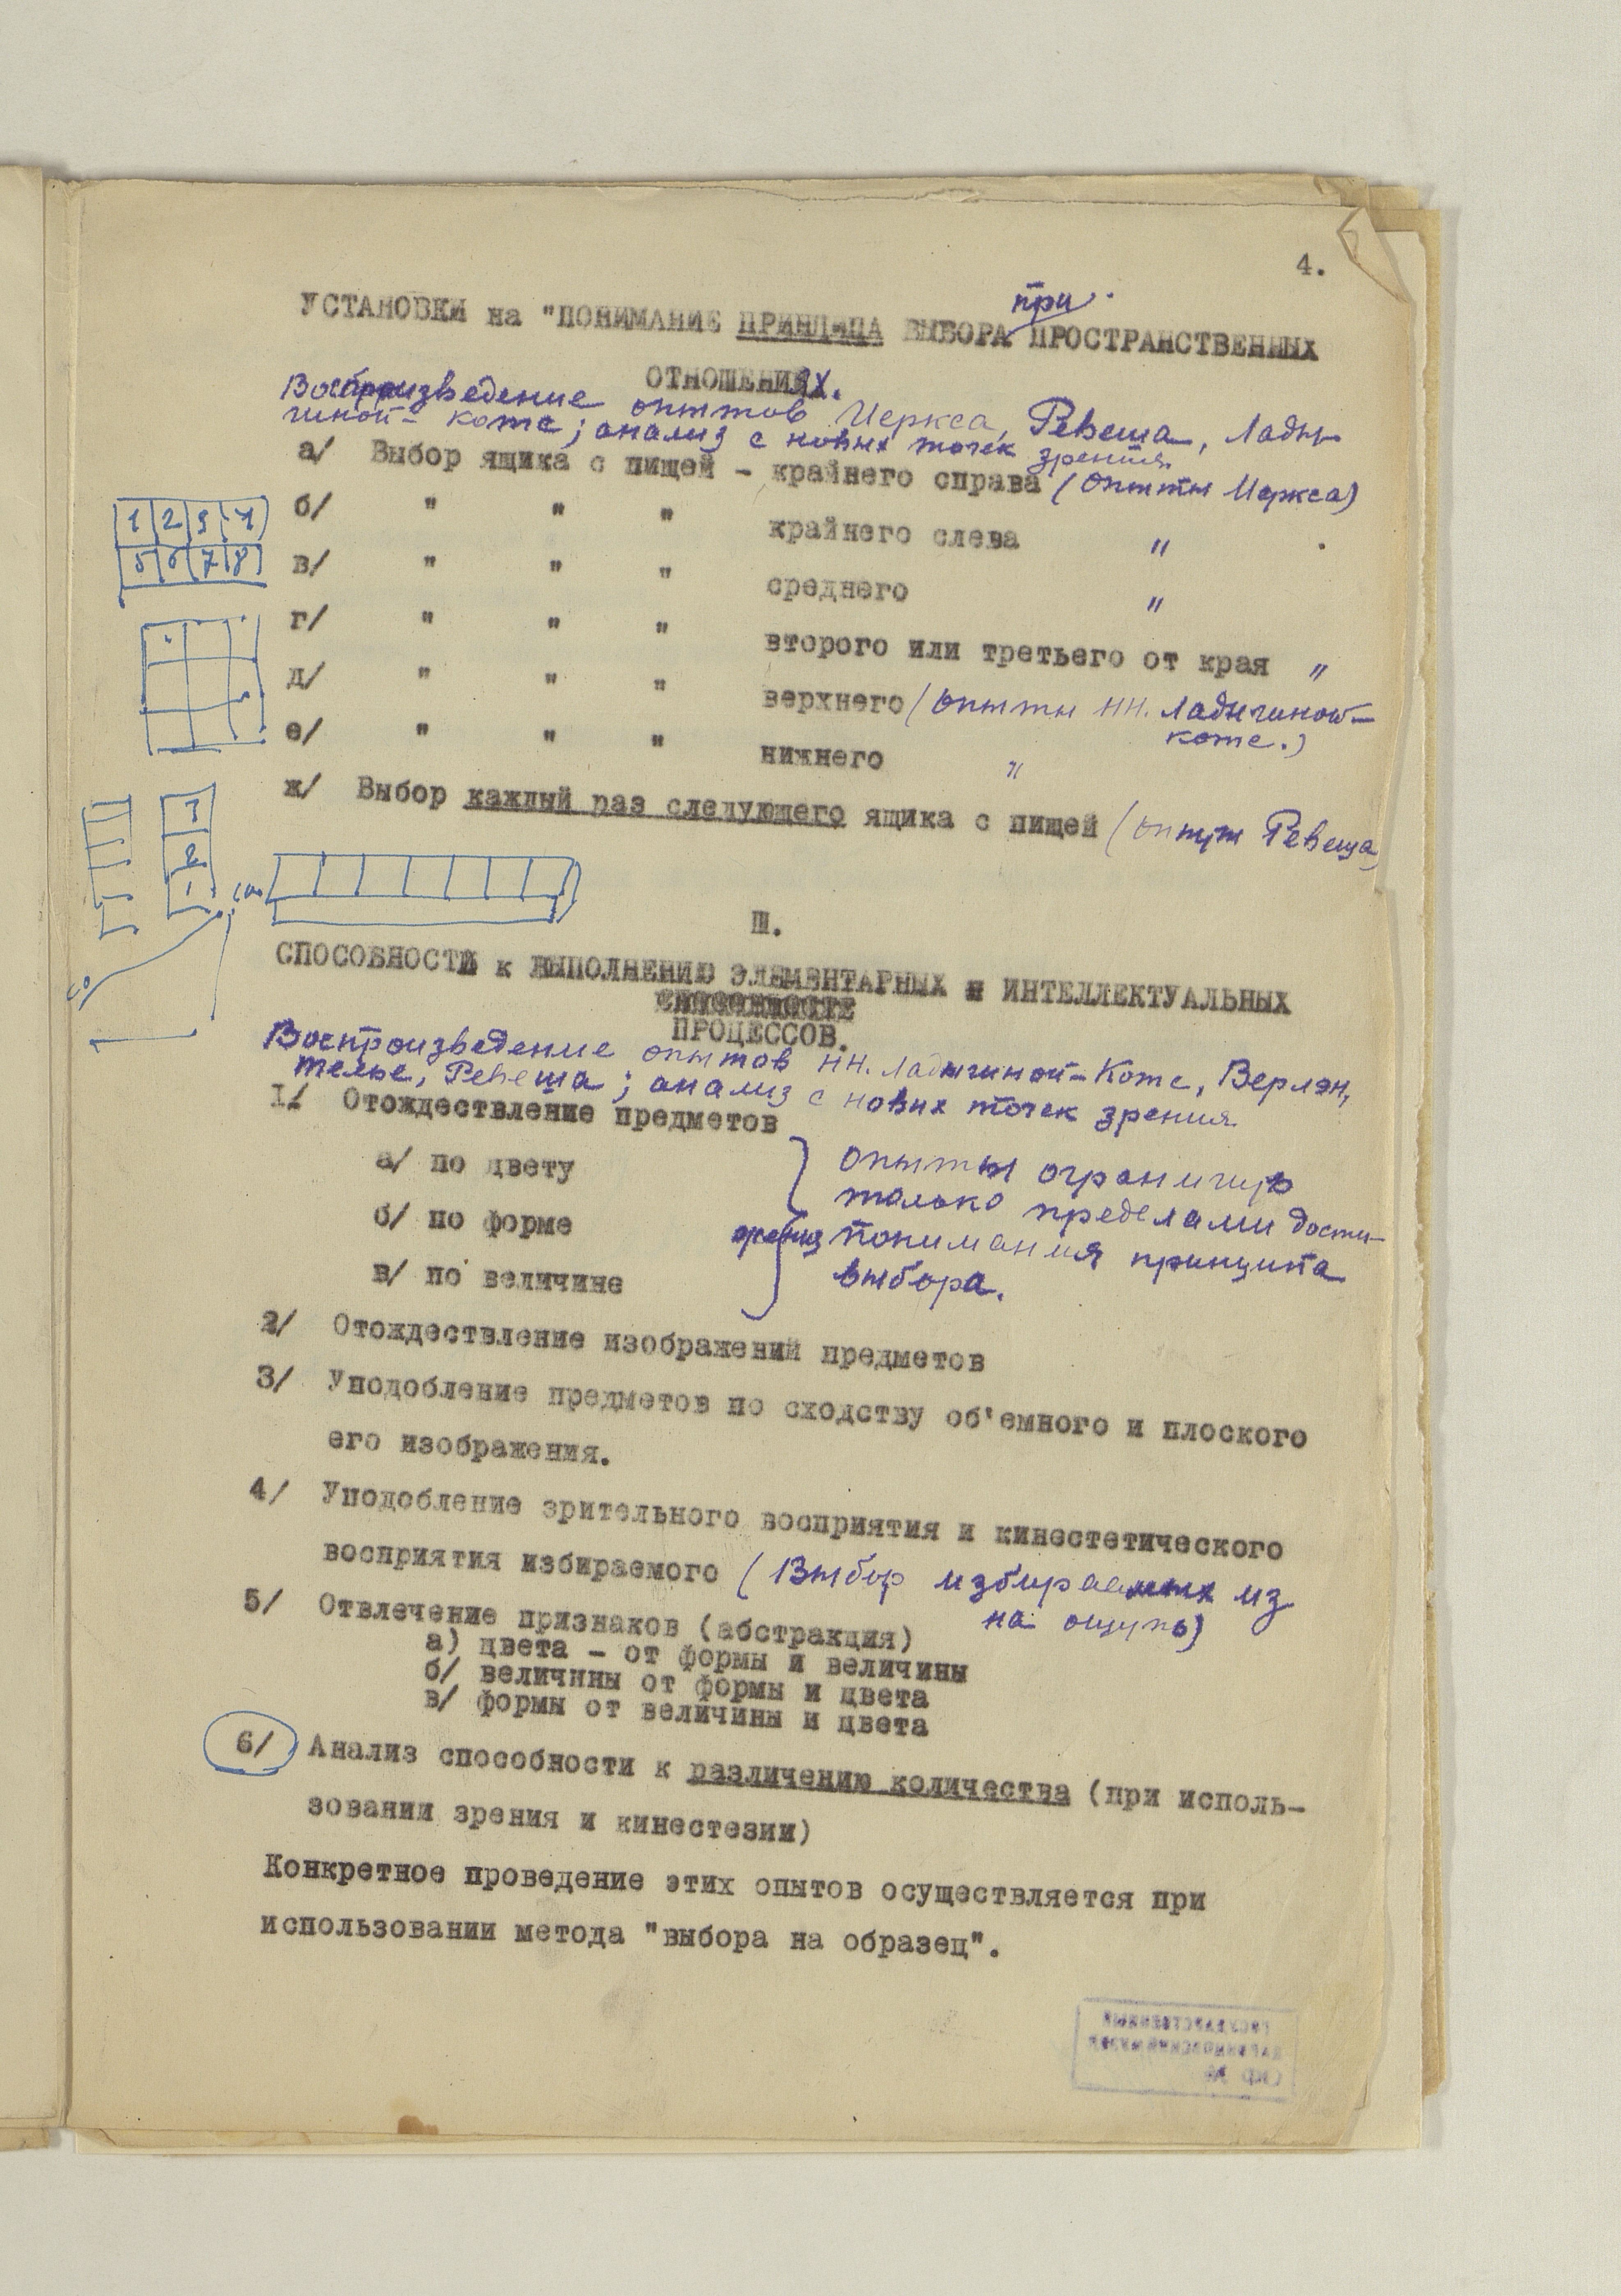 4.
при
УСТАНОВКИ на "ПОНИМАНИЕ ПРИНЦИПА ВЫБОРА ПРОСТРАНСТВЕННЫХ
ОТНОШЕНИЯХ.
Воспроизведение опытов Иеркса, Ревеша, Лады-
гиной-Котс; анализ с новых точек зрения.
а/ Выбор ящика с пищей - крайнего справа (опыты Иеркса)
б/ " " " крайнего слева "
в/ " " " среднего "
г/ " " " второго или третьего от края "
д/ " " " верхнего (опыты НН. Ладыгиной-
Котс.)
е/ " " " нижнего "
ж/ Выбор каждый раз следующего ящика с пищей (опыт Ревеша)
1 2 3 4
5 6 7 8
3
2
1
III.
СПОСОБНОСТЬ к ВЫПОЛНЕНИЮ ЭЛЕМЕНТАРНЫХ И ИНТЕЛЛЕКТУАЛЬНЫХ
ПРОЦЕССОВ.
Воспроизведение опытов НН. Ладыгиной-Котс, Верлэн,
Телье, Ревеша; анализ с новых точек зрения
1/ Отождествление предметов
а/ по цвету
б/ по форме
в/ по величине
опыты огранич
только пределами дости-
жения понимания принципа
выбора.
2/ Отождествление изображений предметов
3/ Уподобление предметов по сходству об'емного и плоского
его изображения.
4/ Уподобление зрительного восприятия и кинестетического
восприятия избираемого (Выбор избираемых из
на ощупь)
5/ Отвлечение признаков (абстракция)
а) цвета - от формы и величины
б/ величины от формы и цвета
в/ формы от величины и цвета
6/ Анализ способности к различению количества (при исполь-
зовании зрения и кинестезии)
Конкретное проведение этих опытов осуществляется при
использовании метода "выбора на образец".